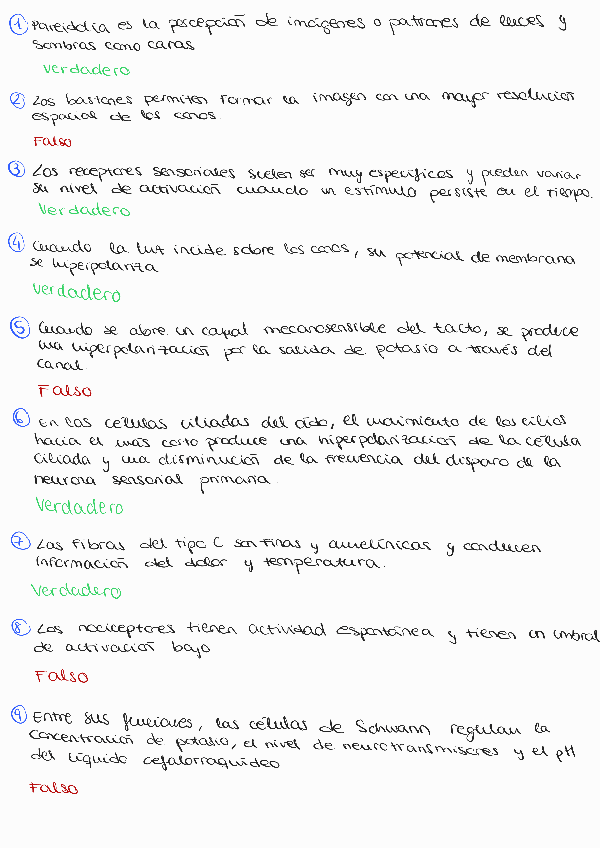 ① Pareidolia es la percepción de imágenes o patrones de luces y
sombras como caras
Verdadero
② Los bastones permiten formar la imagen con una mayor resolución
espacial de los conos.
Falso
③ Los receptores sensoriales suelen ser muy específicos y pueden variar
su nivel de activación cuando un estímulo persiste en el tiempo.
Verdadero
④ Cuando la luz incide sobre los conos, su potencial de membrana
se hiperpolariza
Verdadero
⑤ Cuando se abre un canal mecanosensible del tacto, se produce
una hiperpolarización por la salida de potasio a través del
canal.
Falso
⑥ En las células ciliadas del oído, el movimiento de los cilios
hacia el más corto produce una hiperpolarización de la célula
ciliada y una disminución de la frecuencia del disparo de la
neurona sensorial primaria.
Verdadero
⑦ Las fibras del tipo C son finas y amielínicas y conducen
información del dolor y temperatura.
Verdadero
⑧ Los nociceptores tienen actividad espontánea y tienen un umbral
de activación bajo
Falso
⑨ Entre sus funciones, las células de Schwann regulan la
concentración de potasio, el nivel de neurotransmisores y el pH
del líquido cefalorraquídeo
Falso